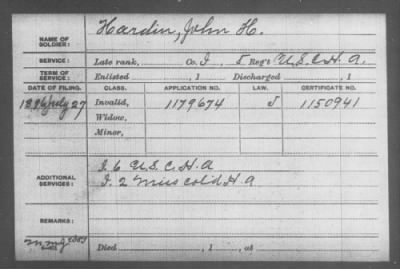 NAME OF SOLDIER: Hardin, John H.
SERVICE: Late rank, Co. I, 5 Reg't U.S.C.H.A.
TERM OF SERVICE: Enlisted , 1 Discharged , 1
DATE OF FILING. CLASS. APPLICATION NO. LAW. CERTIFICATE NO.
1896 July 27 Invalid, 1179674 J 1150941
Widow,
Minor,
ADDITIONAL SERVICES: I. 6 U.S.C.H.A
I. 2 Miss Col'd H.A
REMARKS:
Died , 1 , at